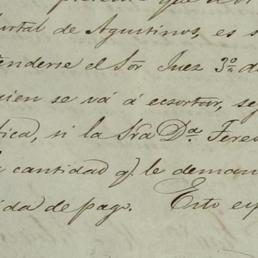 presente que
ortal de Agustinos, es s
tenderse el Sor Juez 3º de
uien se vá á ecsortar, se
tica, si la Sra Dª. Teres
a cantidad q. le deman
ida de pago. Esto es